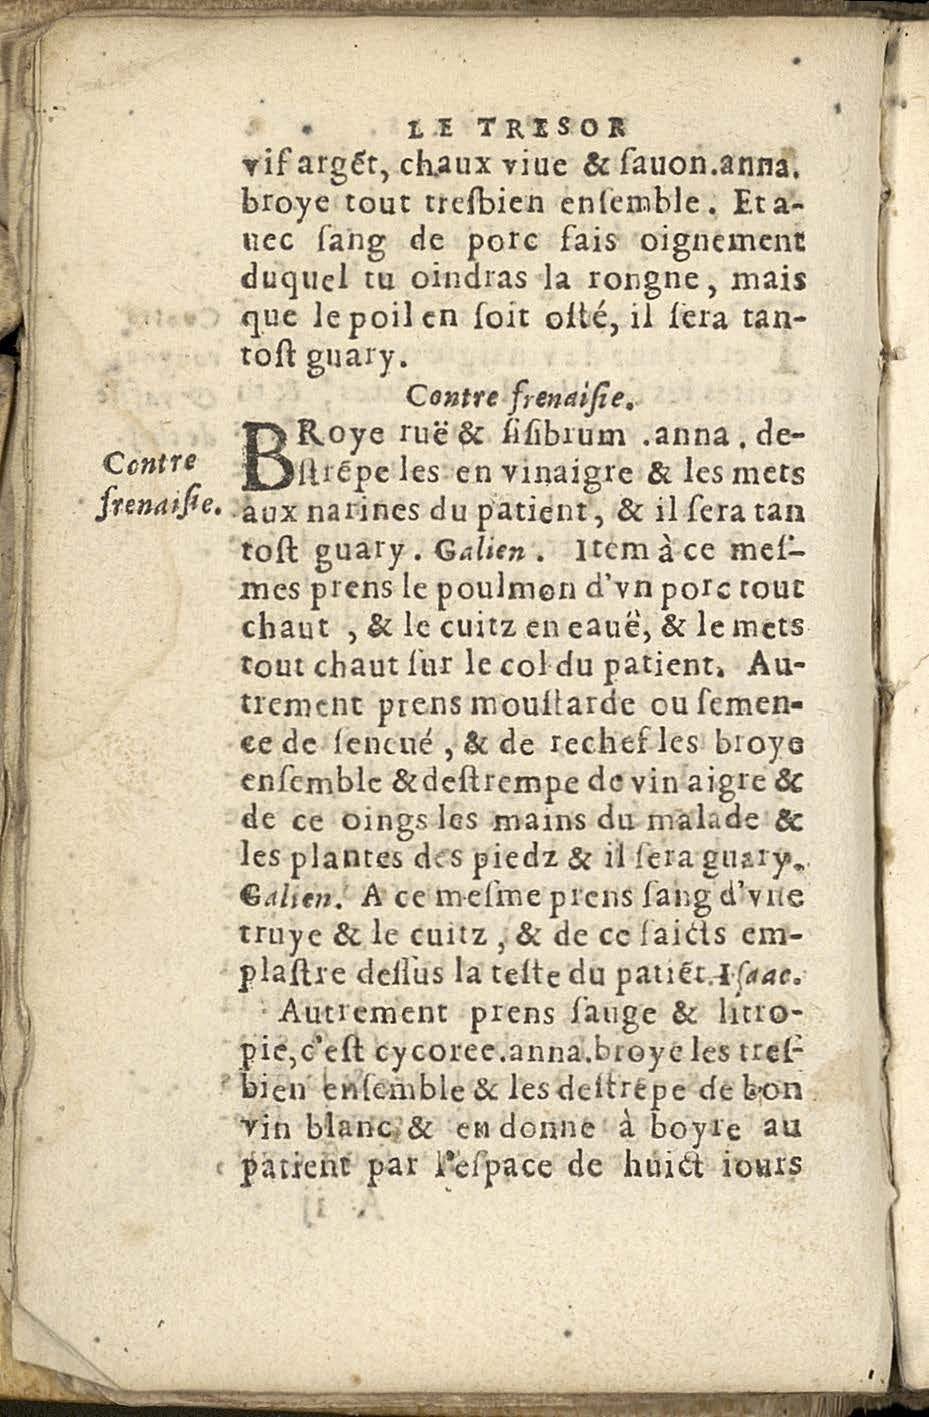 LE TRESOR
vif argẽt, chaux viue & ſauon.anna.
broye tout treſbien enſemble. Et a-
uec ſang de porc fais oignement
duquel tu oindras la rongne, mais
que le poil en ſoit oſté, il ſera tan-
toſt guary.
Contre frenaiſie.
BRoye ruë & ſiſibrum .anna. de-
Contre
frenaiſie.
ſtrẽpe les en vinaigre & les mets
aux narines du patient, & il ſera tan
toſt guary. Galien. Item à ce meſ-
mes prens le poulmon d'vn porc tout
chaut , & le cuitz en eauë, & le mets
tout chaut ſur le col du patient. Au-
trement prens mouſtarde ou ſemen-
ce de ſeneué , & de rechef les broye
enſemble & deſtrempe de vin aigre &
de ce oings les mains du malade &
les plantes des piedz & il ſera guary.
Galien. A ce meſme prens ſang d'vne
truye & le cuitz , & de ce faicts em-
plaſtre deſſus la teſte du patiẽt. Iſaac.
Autrement prens ſauge & litro-
pie, c'eſt cycoree.anna.broye les treſ-
bien enſemble & les deſtrẽpe de bon
vin blanc & en donne à boyre au
patient par l'eſpace de huict iours